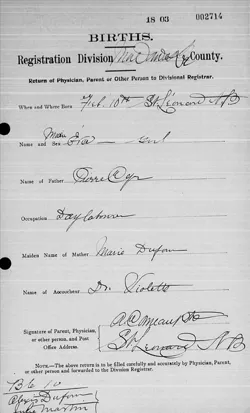 18 03 002714
BIRTHS.
Registration Division Madawaska County.
Return of Physician, Parent or Other Person to Divisional Registrar.
When and Where Born Feb. 10th St. Leonard N B
Marie
Name and Sex Eva — Girl
Name of Father Pierre Cyr
Occupation Day labourer
Maiden Name of Mother Marie Dufour
Name of Accoucheur Dr. Violette
Signature of Parent, Physician,
or other person, and Post
Office Address.
St Leonard N B
NOTE.—The above return is to be filled carefully and accurately by Physician, Parent,
or other person and forwarded to the Division Registrar.
Dufour
Martin